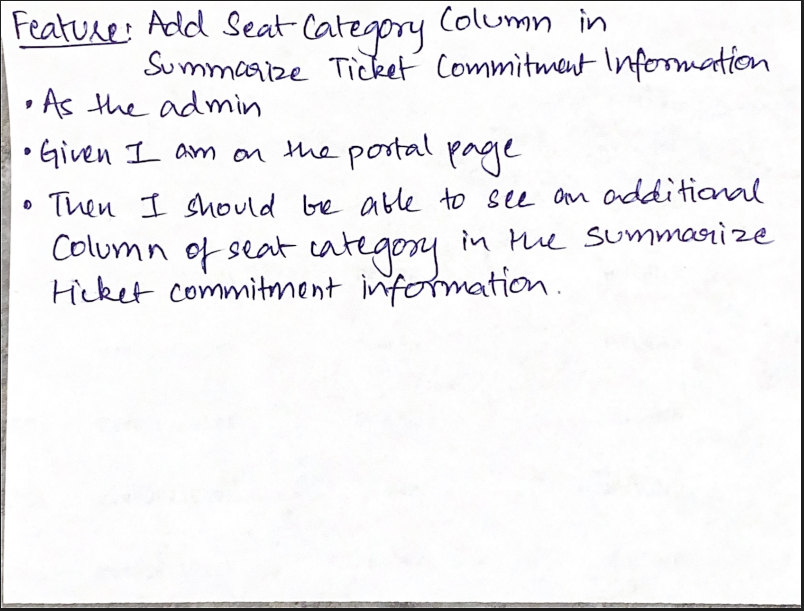 Feature: Add Seat Category Column in
Summarize Ticket Commitment Information
• As the admin
• Given I am on the portal page
• Then I should be able to see an additional
Column of seat category in the summarize
ticket commitment information.